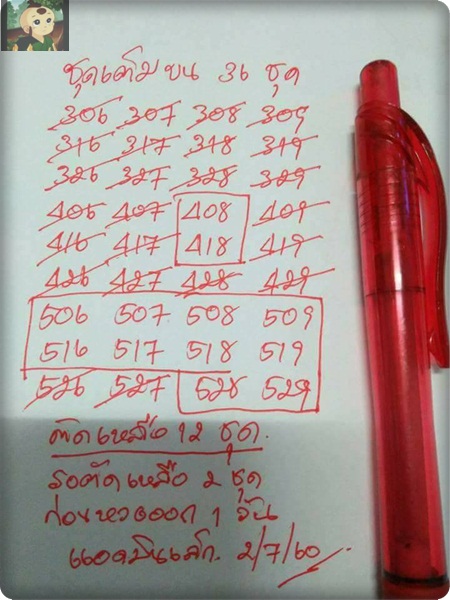 ชุดเต็ม บน 36 ชุด
306 307 308 309
316 317 318 319
326 327 328 329
406 407 408 409
416 417 418 419
426 427 428 429
506 507 508 509
516 517 518 519
526 527 528 529
ตัดเหลือ 12 ชุด.
รอตัดเหลือ 2 ชุด
ก่อนหวยออก 1 วัน
2/7/60